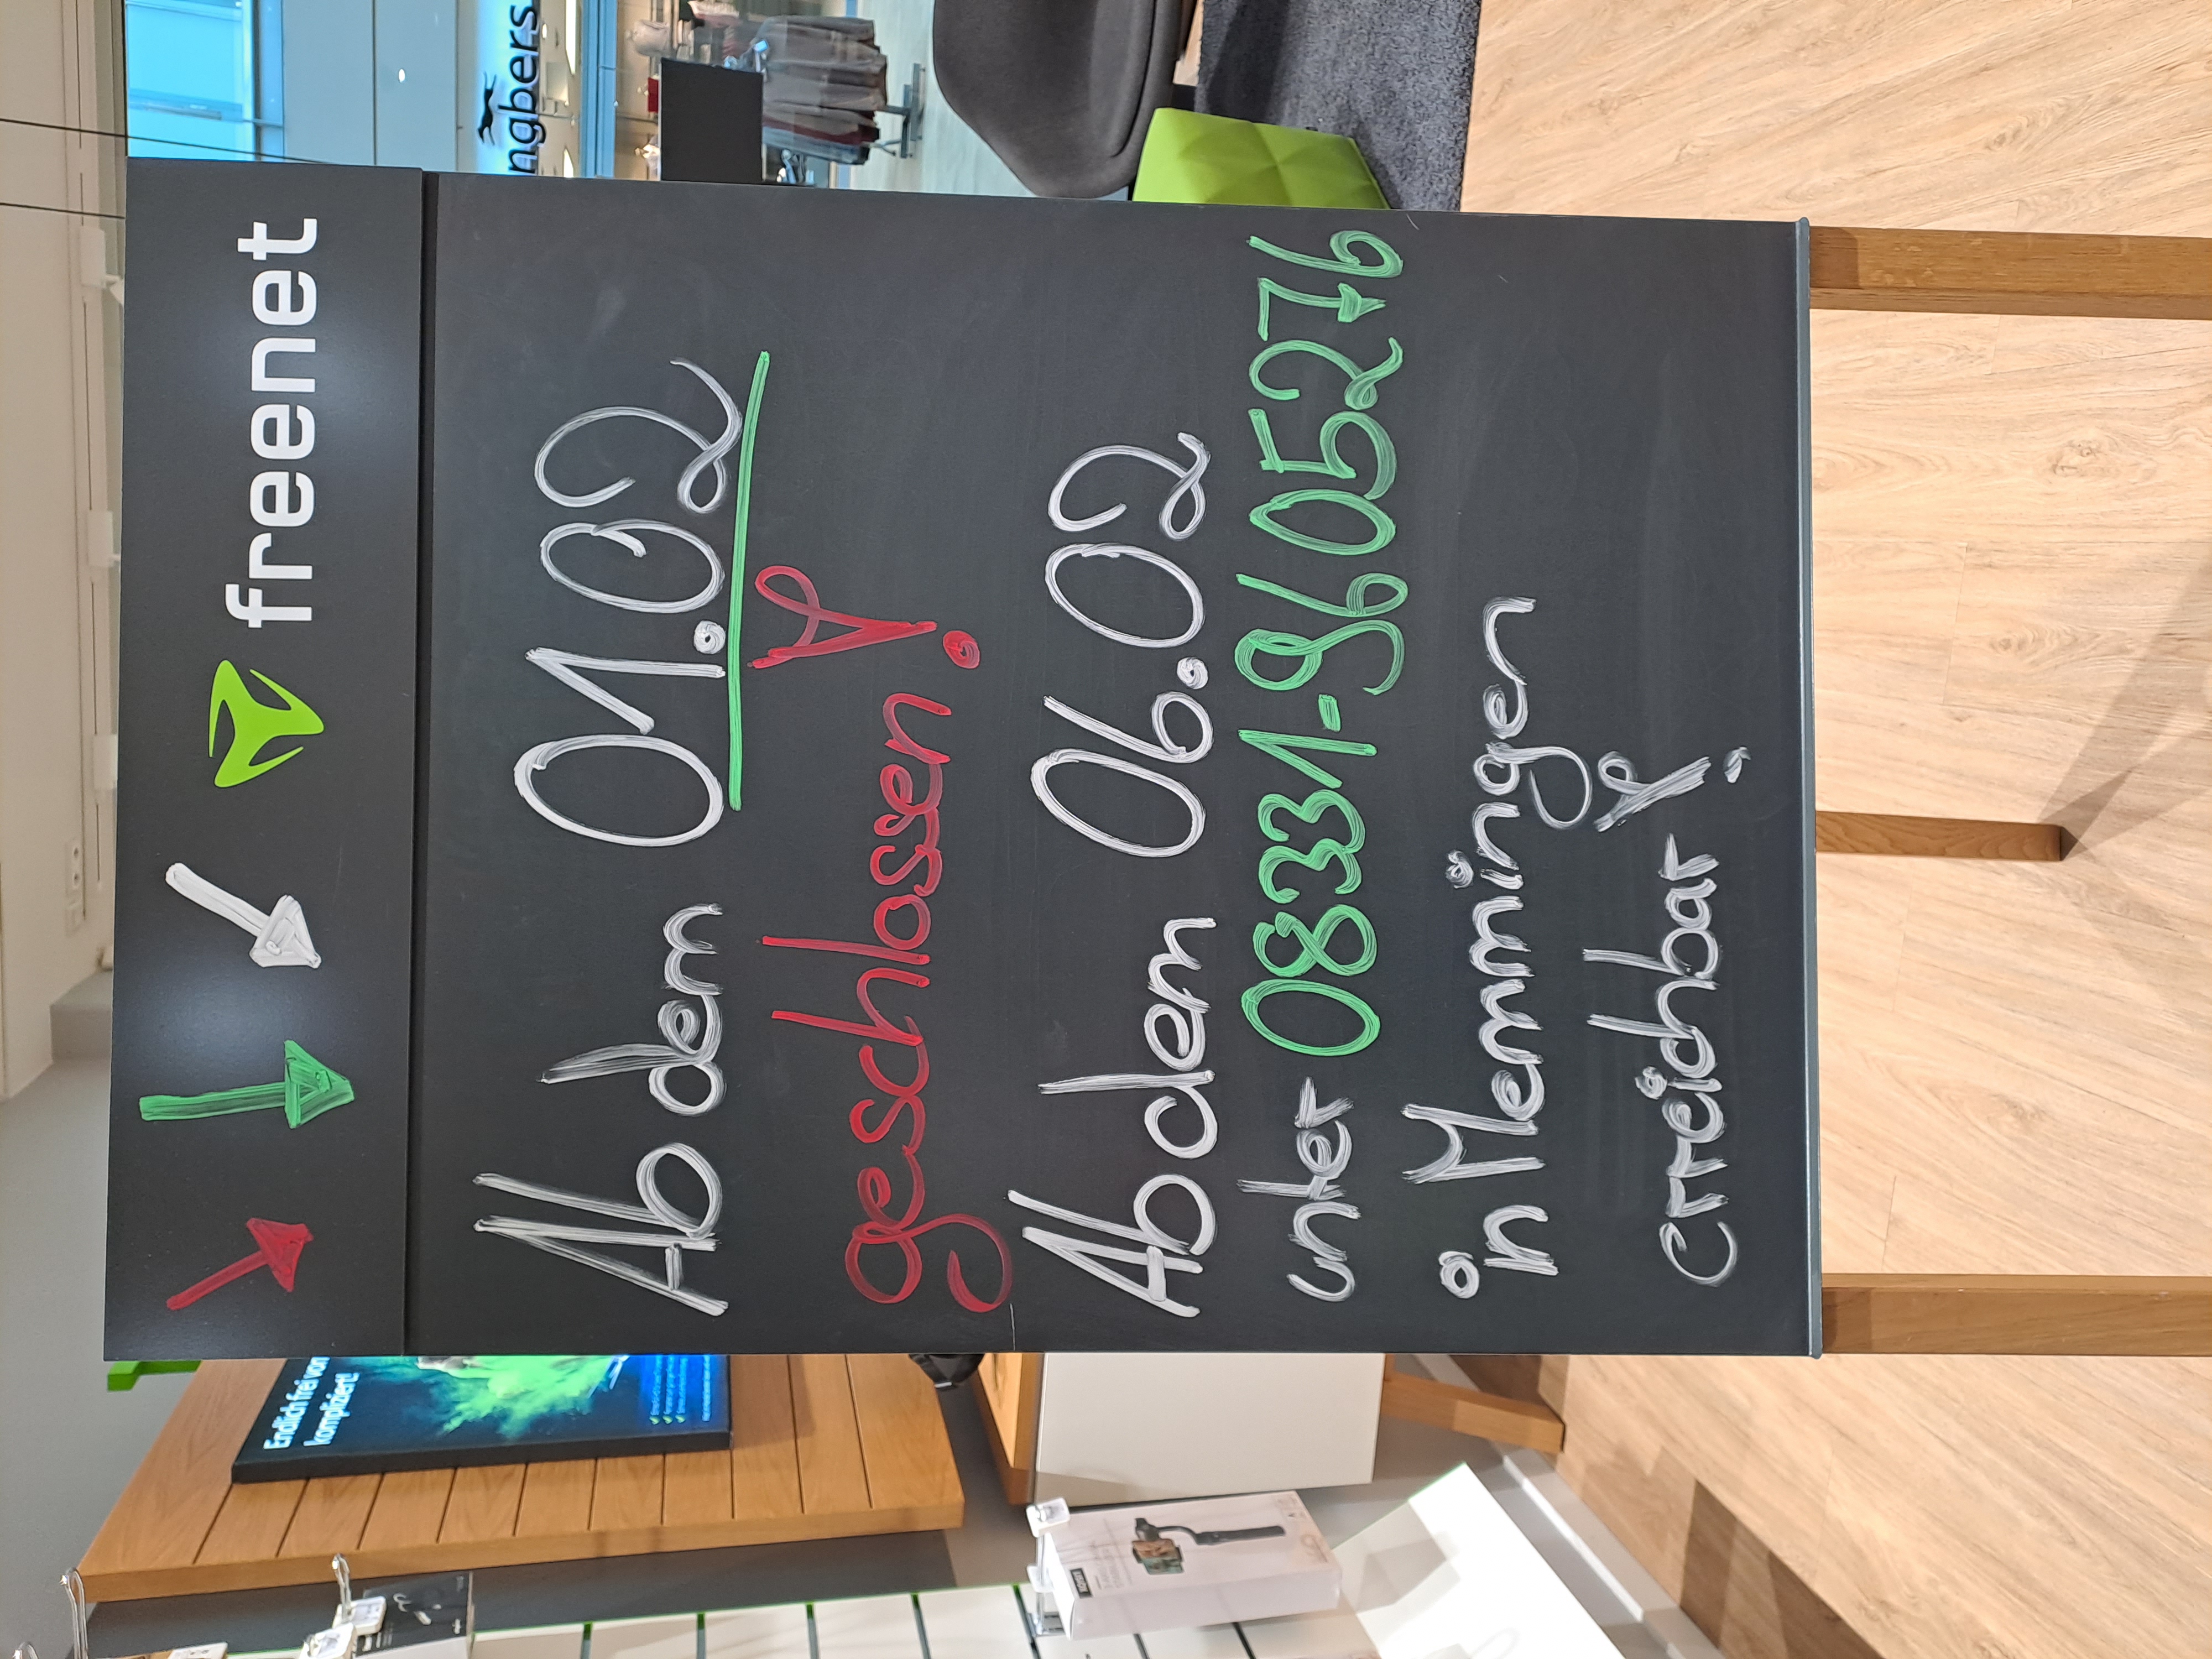 freenet
Ab dem 01.02
geschlossen!
Ab dem 06.02
unter 08331-9605276
in Memmingen
erreichbar!
ngbers
Endlich frei von
kompliziert!